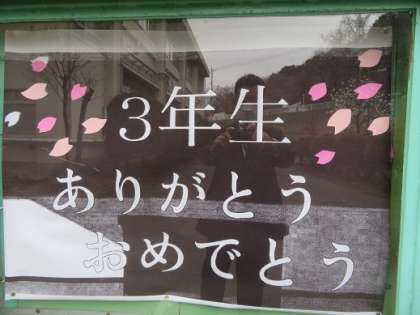 3年生
ありがとう
おめでとう